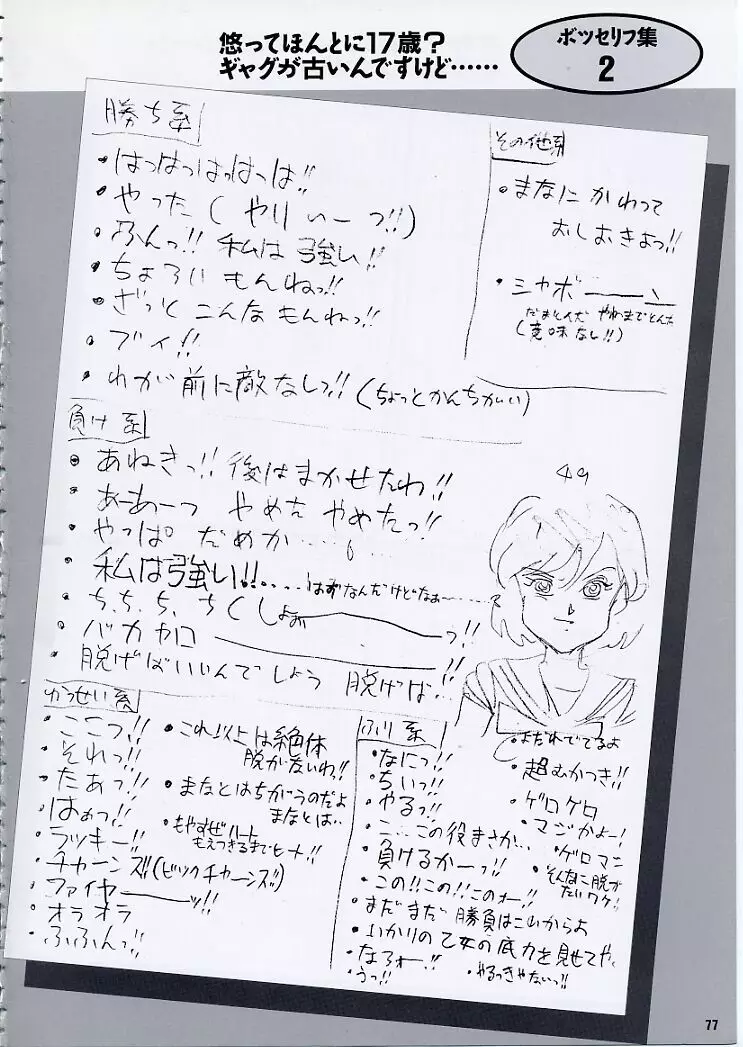 悠ってほんとに17歳?
ギャグが古いんですけど……
ボツセリフ集
2
勝ち系
・はっはっはっはっは!!
・やった(やりぃーっ!!)
・ふんっ!! 私は強い!!
・ちょろいもんねっ!!
・ざっとこんなもんねっ!!
・ブイ!!
・わが前に敵なしっ!!(ちょっとかんちがい)
その他系
・まなにかわって
おしおきよっ!!
・シャボーーン
(意味なし!!)
負け系
・あねきっ!! 後はまかせたわ!!
・あーあーっ やめたやめたっ!!
・やっぱだめか……
・私は強い!!.....はずなんだけどなぁ……
・ち、ち、ち、ちくしょおぉーーっ!!
・バカヤローーーっ!!
・脱げばいいんでしょう 脱げば!!
49
かっせい系
・ここっ!!
・それっ!!
・たあっ!!
・はぁっ!!
・ラッキー!!
・チャーンズ!!(ビックチャーンズ!!)
・ファイヤーーッ!!
・オラオラ
・ふふんっ!!
・これ以上は絶体
脱がないわ!!
・まなとはちがうのだよ
まなとは..
・もやすぜハート
もえつきるまでヒート!!
ふり系
・なにっ!!
・ちいっ!!
・やるっ!!
・こ...この役まさか...
・負けるかーっ!!
・この!!この!!このォー!!
・まだまだ勝負はこれからよ
・いかりの乙女の底力を見せてやる
・なろォー!!
・うっ!!
・まだれでてるよ
・超むかつき!!
・ゲロゲロ
・マジかよー!
・ゲロマニ
・そんなに脱が
たいワケ!
・やるっきゃないっ!!
77